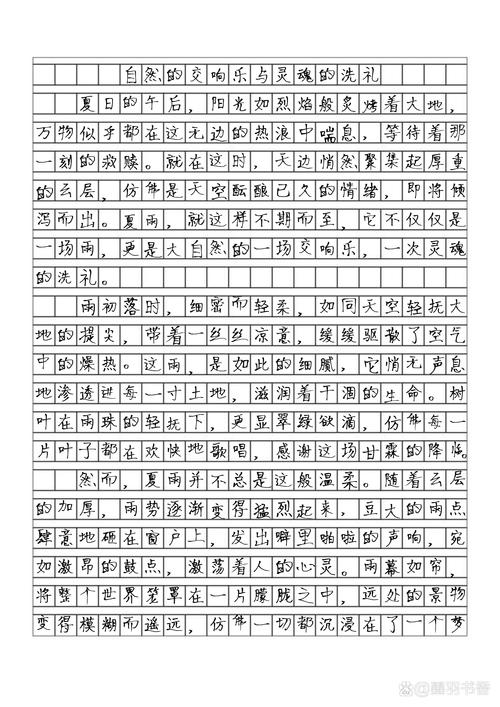 自然的交响乐与灵魂的洗礼
夏日的午后，阳光如烈焰般炙烤着大地，
万物似乎都在这无边的热浪中喘息，等待着那
一刻的救赎。就在这时，天边悄然聚集起厚重
的云层，仿佛是天空酝酿已久的情绪，即将倾
泻而出。夏雨，就这样不期而至，它不仅仅是
一场雨，更是大自然的一场交响乐，一次灵魂
的洗礼。
雨初落时，细密而轻柔，如同天空轻抚大
地的提尖，带着一丝丝凉意，缓缓驱散了空气
中的燥热。这雨，是如此的细腻，它悄无声息
地渗透进每一寸土地，滋润着干涸的生命。树
叶在雨珠的轻抚下，更显翠绿欲滴，仿佛每一
片叶子都在欢快地歌唱，感谢这场甘霖的降临。
然而，夏雨并不总是这般温柔。随着云层
的加厚，雨势逐渐变得猛烈起来，豆大的雨点
肆意地砸在窗户上，发出噼里啪啦的声响，宛
如激昂的鼓点，激荡着人的心灵。雨幕如帘，
将整个世界笼罩在一片朦胧之中，远处的景物
变得模糊而遥远，仿佛一切都沉浸在了一个梦
晶羽书香